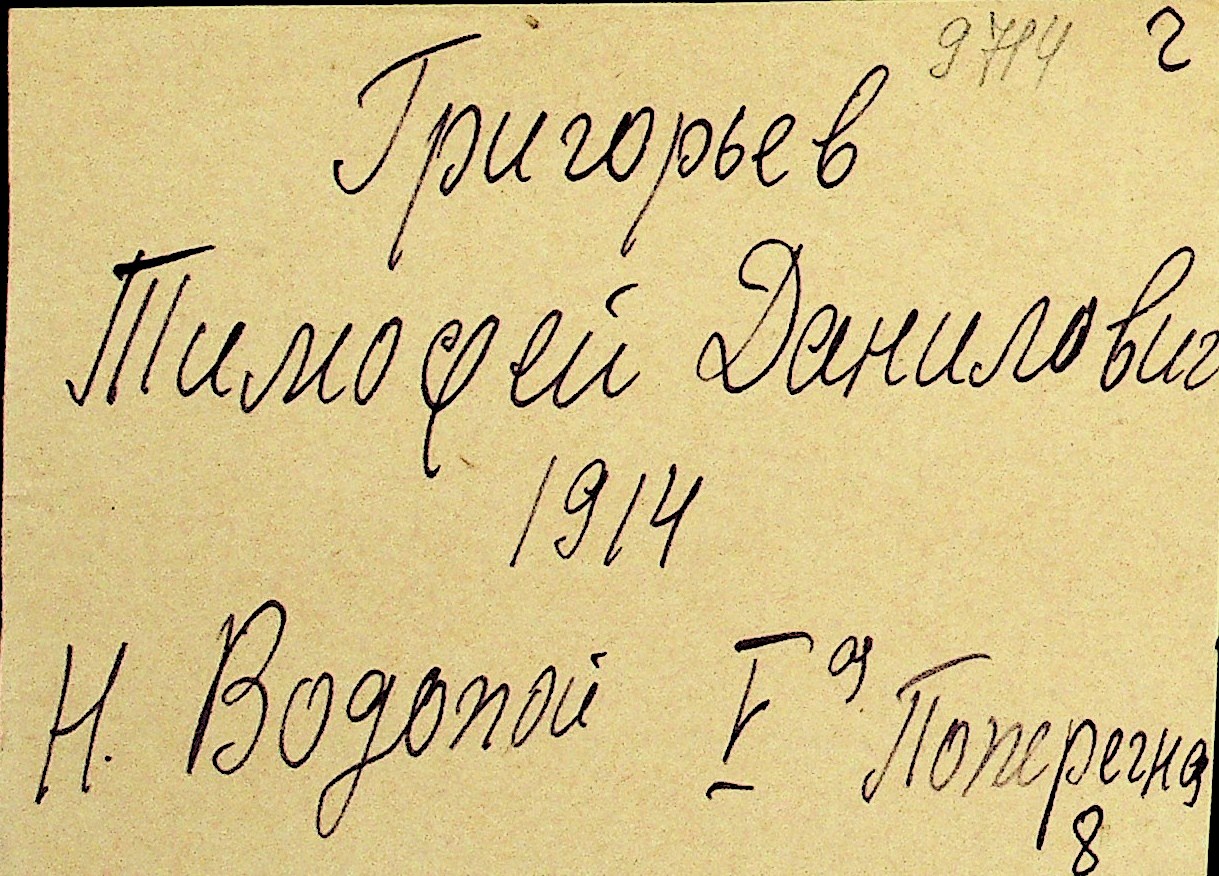 9714 2
Григорьев
Тимофей Данилович
1914
Н. Водопой V ая Поперечная
8